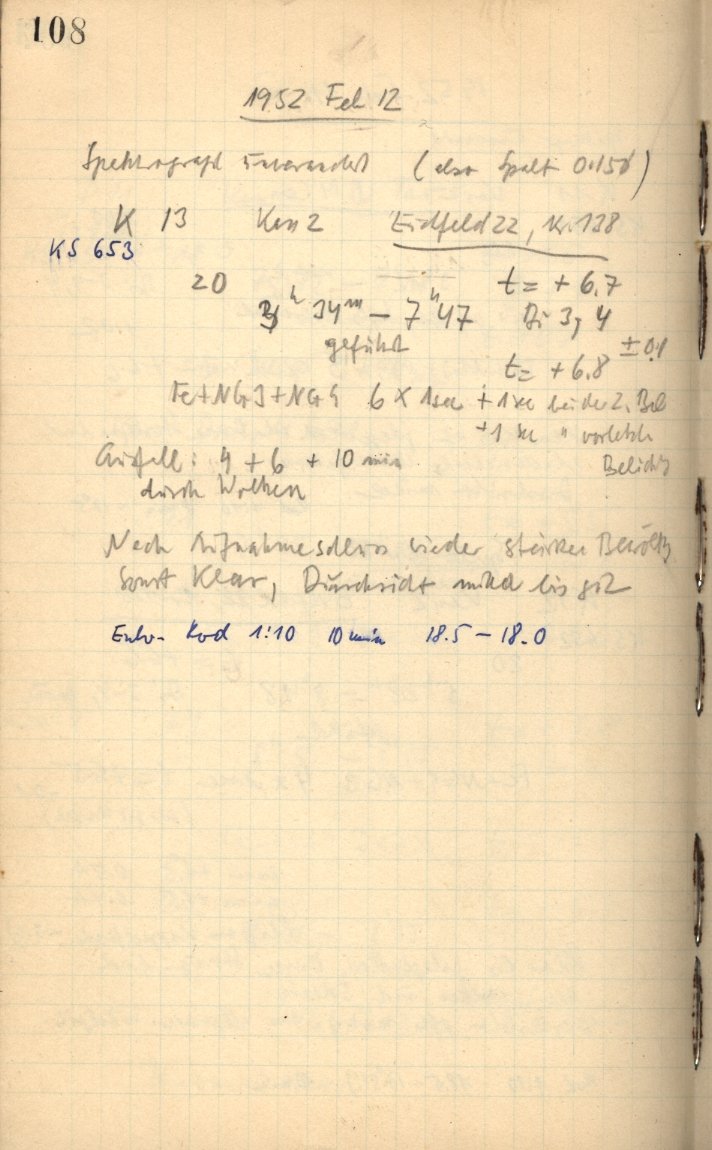 108
1952 Feb 12
Spektrograph unverändert (also Spalt 0.150)
K 13 Kas 2 Eichfeld 22, Nr. 138
KS 653
20 t = + 6.7
3h 34m – 7h 47 Bi 3, 4
geführt ± 0.1
t = + 6.8
Fe + NGr 3 + NGr 4 6 × 1 sec + 1 sec bei der 2. Bel
+ 1 sec " vorletzte Belichtg
Ausfall: 4 + 6 + 10 min
durch Wolken
Nach Aufnahmeschluss wieder stärker Bewölkg
Sonst Klar, Durchsicht mittel bis gut
Entw. Rod 1:10 10 min 18.5 – 18.0